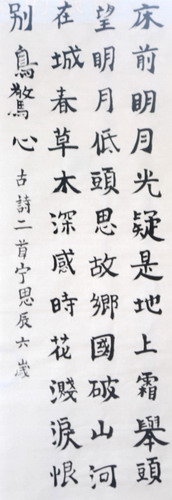 床前明月光疑是地上霜舉頭
望明月低頭思故鄉國破山河
在城春草木深感時花濺淚恨
別鳥驚心古詩二首宁思辰六歲